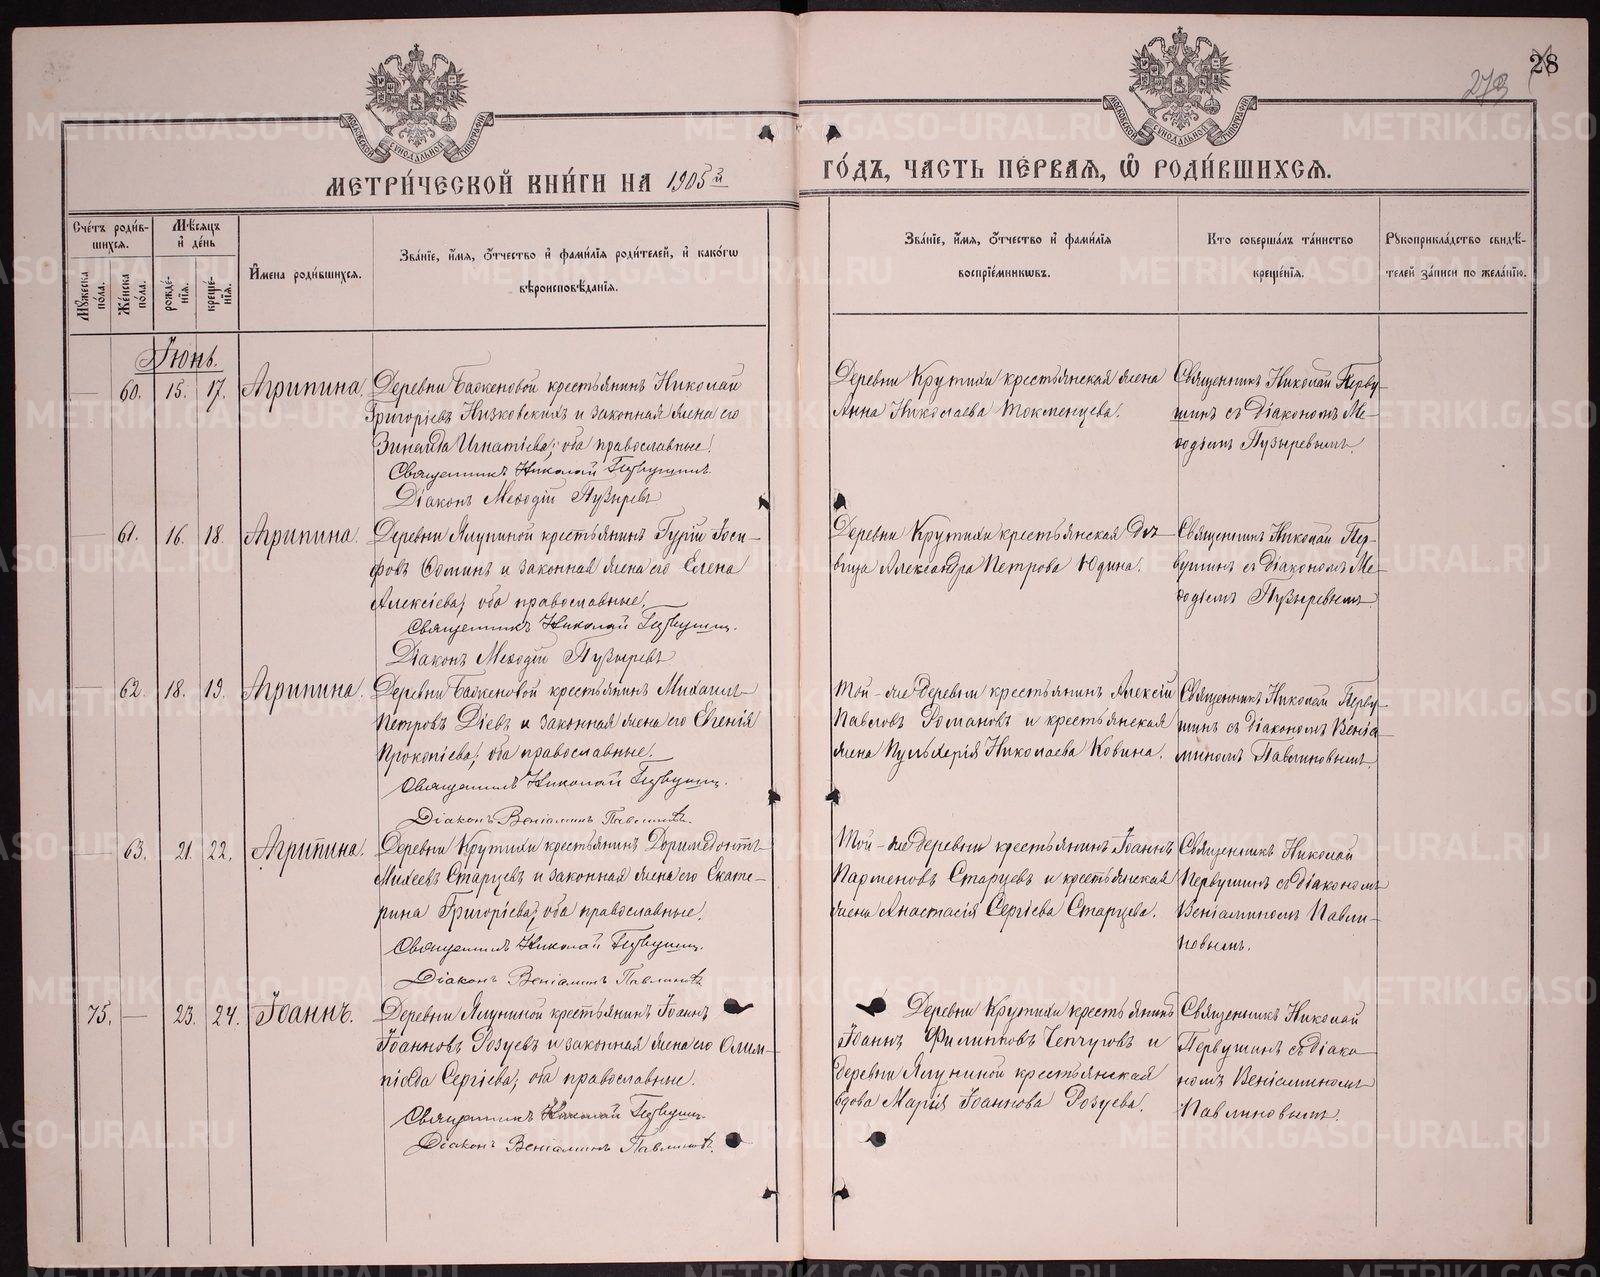 28
273
МОСКОВСКОЙ СѴНОДАЛЬНОЙ ТИПОГРАФІИ
МОСКОВСКОЙ СѴНОДАЛЬНОЙ ТИПОГРАФІИ
МЕТРИ́ЧЕСКОЙ КНИ́ГИ НА 1905й
ГО́ДЪ, ЧАСТЬ ПЕ́РВАЯ, Ѡ РОДИ́ВШИХСЯ.
Сче́тъ роди́в-
шихся.
Мꙋжеска по́ла.
Же́нска по́ла.
Мѣ́сяцъ и҆ де́нь
рожде́-
нія.
креще́-
нія.
И҆мена роди́вшихся.
Зва́ніе, и҆́мя, ѻ҆́тчество и҆ фами́лія роди́телей, и҆ како́гѡ
вѣроисповѣ́данія.
Зва́ніе, и҆́мя, ѻ҆́тчество и҆ фами́лія
воспріе́мникѡвъ.
Кто соверша́лъ та́инство
креще́нія.
Рꙋкоприкла́дство свидѣ́-
телей за́писи по жела́нію.
Іюнь.
— 60. 15. 17. Агрипина.
Деревни Баженовой крестьянинъ Николай
Григоріевъ Низковскихъ и законная жена его
Зинаида Игнатіева; оба православные.
Священникъ Николай Первушинъ.
Діаконъ Меѳодій Пузыревъ
Деревни Крутихи крестьянская жена
Анна Николаева Токменцева.
Священникъ Николай Перву-
шинъ съ діакономъ Ме-
ѳодіемъ Пузыревымъ.
— 61. 16. 18. Агрипина.
Деревни Ялуниной крестьянинъ Гурій Іоси-
фовъ Ѳоминъ и законная жена его Елена
Алексіева; оба православные.
Священникъ Николай Первушинъ.
Діаконъ Меѳодій Пузыревъ
Деревни Крутихи крестьянская дѣ-
вица Александра Петрова Юдина.
Священникъ Николай Пер-
вушинъ съ діакономъ Ме-
ѳодіемъ Пузыревымъ
— 62. 18. 19. Агрипина.
Деревни Баженовой крестьянинъ Михаилъ
Петровъ Діевъ и законная жена его Евгенія
Прокопіева; оба православные.
Священникъ Николай Первушинъ.
Діаконъ Веніаминъ Павлиновъ.
Той-же деревни крестьянинъ Алексій
Павловъ Романовъ и крестьянская
жена Пульхерія Николаева Ковина.
Священникъ Николай Перву-
шинъ съ діакономъ Веніа-
миномъ Павлиновымъ
— 63. 21. 22. Агрипина.
Деревни Крутихи крестьянинъ Доримедонтъ
Михеевъ Старцевъ и законная жена его Екате-
рина Григоріева; оба православные.
Священникъ Николай Первушинъ.
Діаконъ Веніаминъ Павлиновъ
Той-же деревни крестьянинъ Іоаннъ
Парменовъ Старцевъ и крестьянская
жена Анастасія Сергіева Старцева.
Священникъ Николай
Первушинъ съ діакономъ
Веніаминомъ Павли-
новымъ.
75. — 23. 24. Іоаннъ.
Деревни Ялуниной крестьянинъ Іоаннъ
Іоанновъ Розуевъ и законная жена его Олим-
піада Сергіева; оба православные.
Священникъ Николай Первушинъ
Діаконъ Веніаминъ Павлиновъ.
Деревни Крутихи крестьянинъ
Іоаннъ Филипповъ Чепчуговъ и
деревни Ялуниной крестьянская
вдова Марія Іоаннова Розуева.
Священникъ Николай
Первушинъ съ діако-
номъ Веніаминомъ
Павлиновымъ.